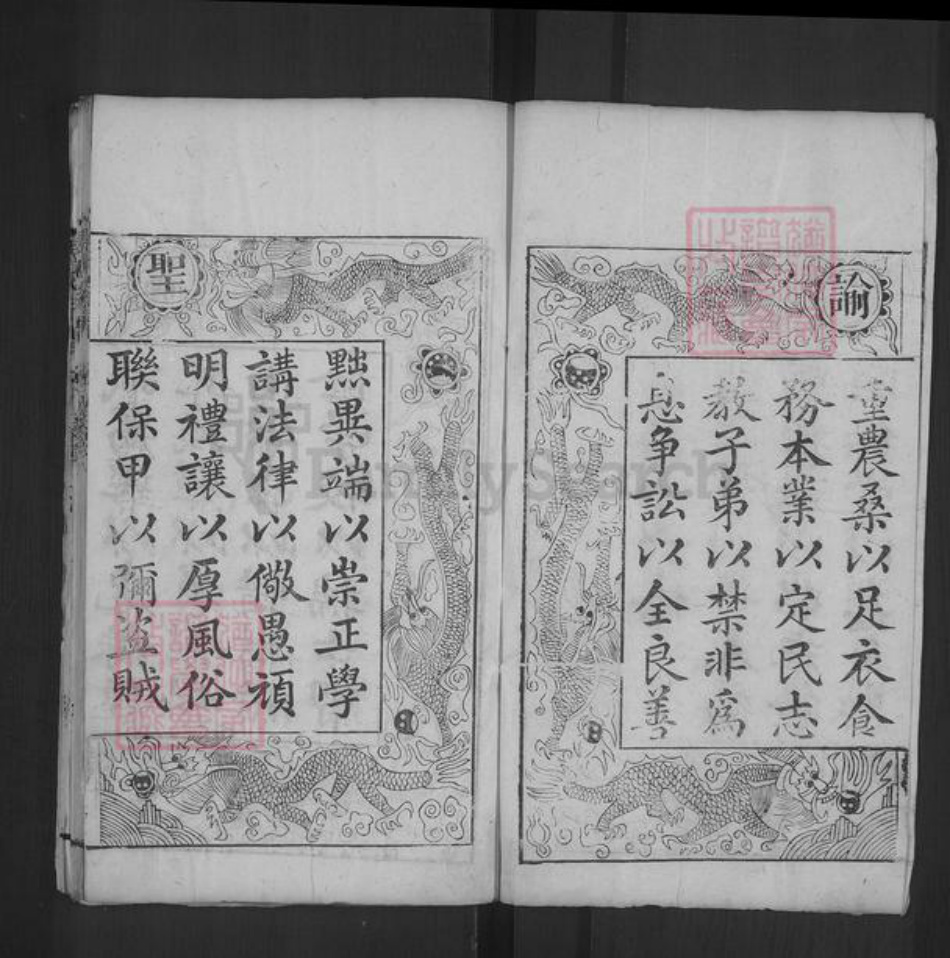 諭
重農桑以足衣食
務本業以定民志
教子弟以禁非為
息争訟以全良善
聖
黜異端以崇正學
講法律以儆愚頑
明禮讓以厚風俗
聯保甲以彌盜賊